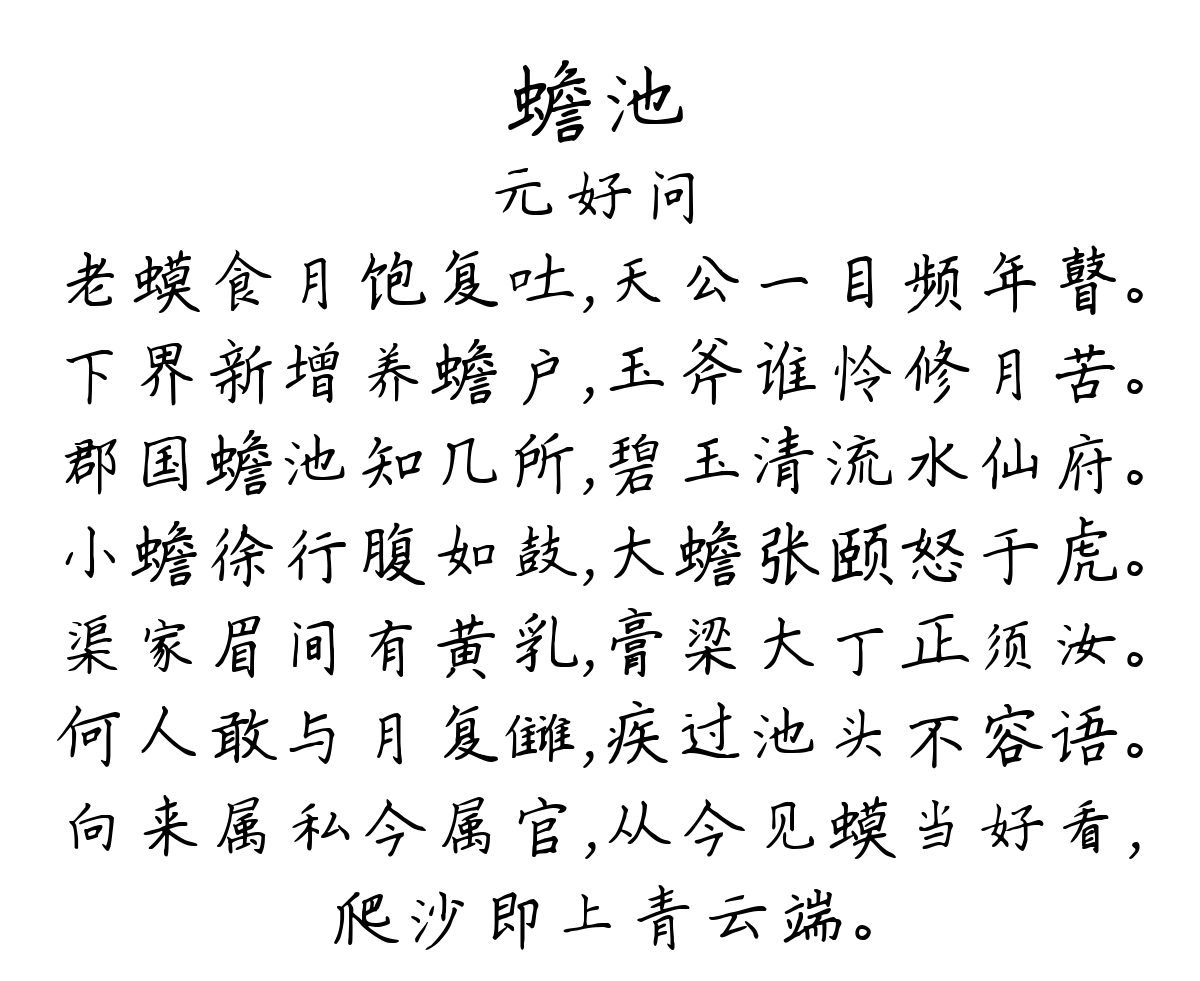 蟾池
元好问
老蟆食月饱复吐,天公一目频年瞽。
下界新增养蟾户,玉斧谁怜修月苦。
郡国蟾池知几所,碧玉清流水仙府。
小蟾徐行腹如鼓,大蟾张颐怒于虎。
渠家眉间有黄乳,膏粱大丁正须汝。
何人敢与月复雠,疾过池头不容语。
向来属私今属官,从今见蟆当好看,
爬沙即上青云端。